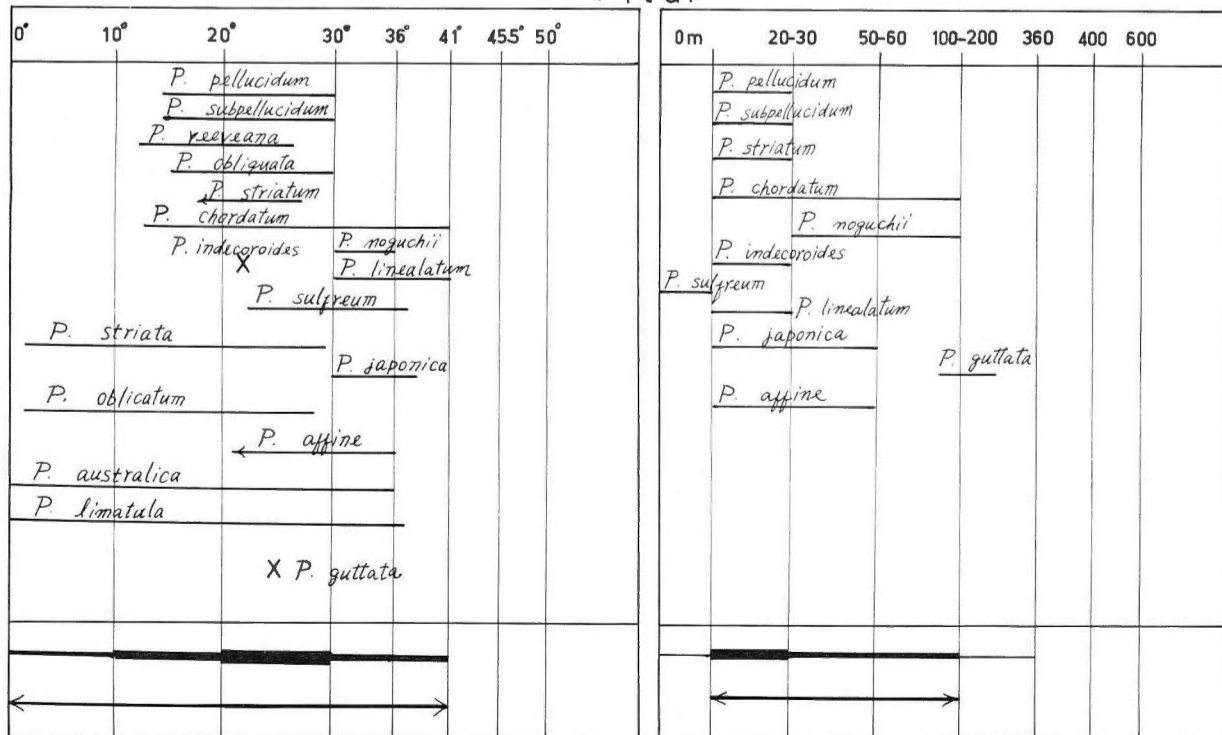 0° 10° 20° 30° 36° 41° 45.5° 50°
P. pellucidum
P. subpellucidum
P. reeveana
P. obliquata
P. striatum
P. chordatum
P. indecoroides
X
P. noguchii
P. linealatum
P. sulfreum
P. striata
P. japonica
P. oblicatum
P. affine
P. australica
P. limatula
X P. guttata
0m 20-30 50-60 100-200 360 400 600
P. pellucidum
P. subpellucidum
P. striatum
P. chordatum
P. noguchii
P. indecoroides
P. sulfreum
P. linealatum
P. japonica
P. guttata
P. affine